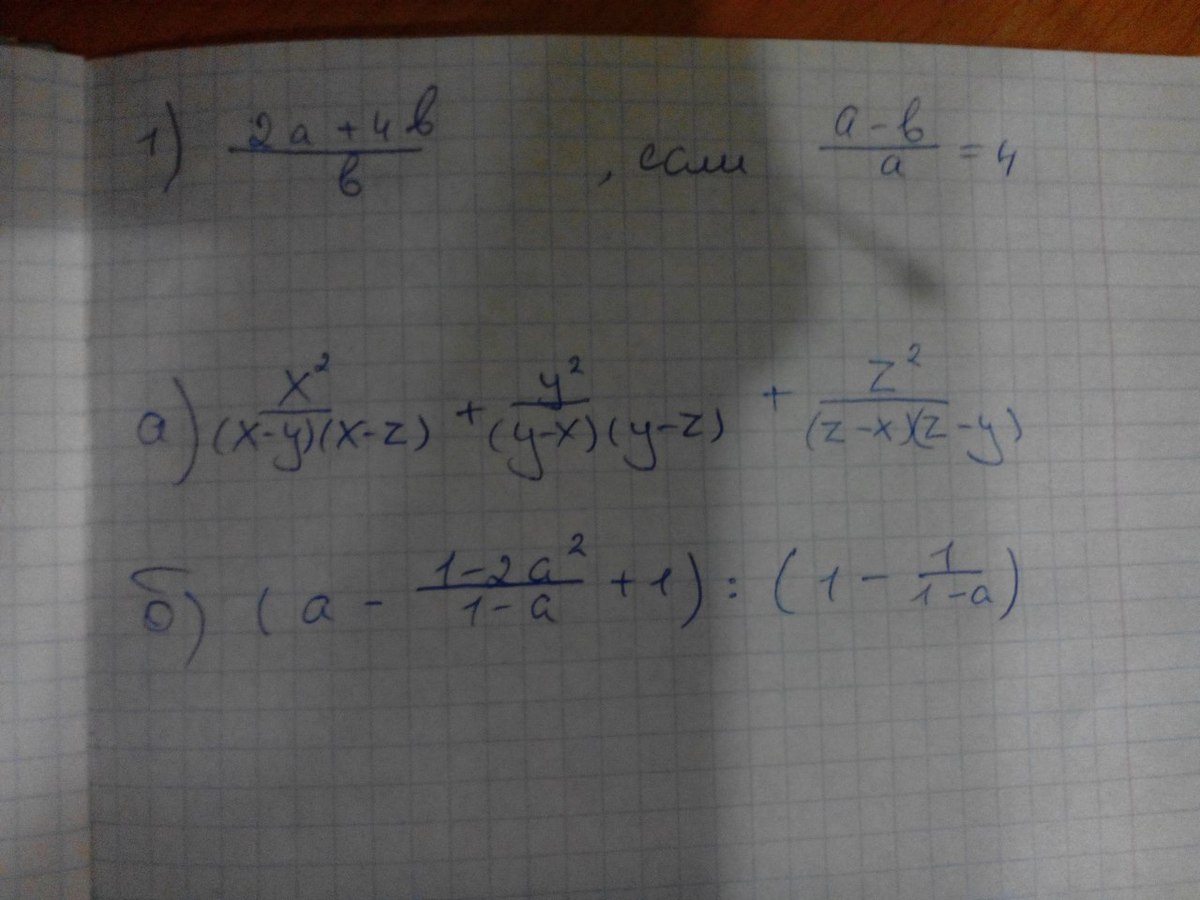 1) (2a + 4b)/b , если (a - b)/a = 4
a) x²/((x-y)(x-z)) + y²/((y-x)(y-z)) + z²/((z-x)(z-y))
б) (a - (1-2a²)/(1-a) + 1) : (1 - 1/(1-a))